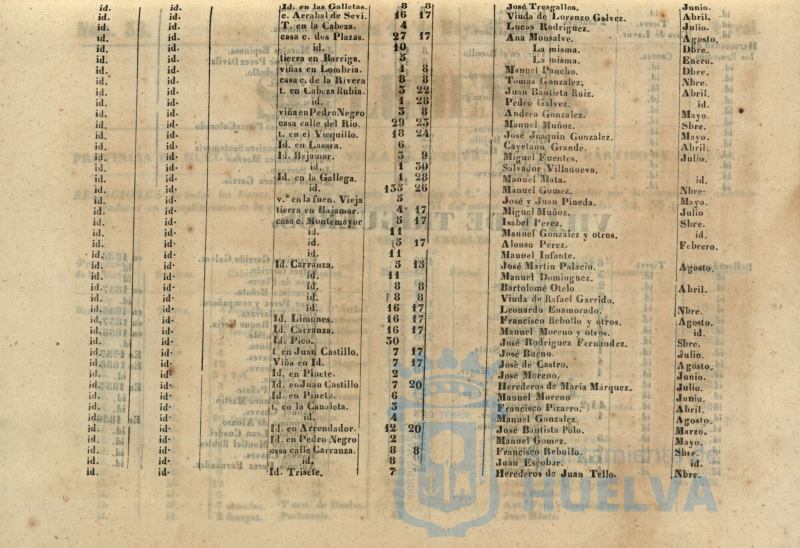 id. id. Id. en las Galletas. 8 8 José Tresgallos. Junio.
id. id. c. Arrabal de Sevi. 16 17 Viuda de Lorenzo Galvez. Abril.
id. id. T. en la Cabeza. 4 Lucas Rodriguez. Julio.
id. id. casa c. dos Plazas. 27 17 Ana Monsalve. Agosto.
id. id. id. 10 La misma. Dbre.
id. id. tierra en Barriga. 5 La misma. Enero.
id. id. viñas en Lombria. 1 8 Manuel Pancho. Dbre.
id. id. casa c. de la Rivera 8 8 Tomas Gonzalez, Nbre.
id. id. t. en Cabeza Rubia. 3 22 Juan Bautista Ruiz. Abril.
id. id. id. 1 28 Pedro Galvez. id.
id. id. viña en Pedro Negro 3 8 Andrea Gonzalez. Mayo.
id. id. casa calle del Rio. 29 25 Manuel Muñoz. Sbre.
id. id. t. en el Visquillo. 18 24 José Joaquin Gonzalez. Mayo.
id. id. Id. en Lasara. 6 Cayetano Grande. Abril.
id. id. Id. Bajamar. 5 9 Miguel Fuentes. Julio.
id. id. id. 1 30 Salvador Villanueva.
id. id. Id. en la Gallega. 1 28 Manuel Mata. id.
id. id. id. 135 26 Manuel Gomez. Nbre.
id. id. v.ª en la fuen. Vieja 5 José y Juan Pineda. Mayo.
id. id. tierra en Bajamar. 4 17 Miguel Muñoz. Julio
id. id. casa c. Montemayor 5 17 Isabel Perez. Sbre.
id. id. id. 11 Manuel Gonzalez y otros. id.
id. id. id. 5 17 Alonso Perez. Febrero.
id. id. id. 11 Manuel Infante.
id. id. Id. Carranza. 5 15 José Martin Palacio. Agosto.
id. id. id. 11 Manuel Dominguez.
id. id. id. 8 8 Bartolomé Otelo Abril.
id. id. id. 8 8 Viuda de Rafael Garrido.
id. id. id. 16 17 Leonardo Enamorado. Nbre.
id. id. Id. Limones. 16 17 Francisco Rebollo y otros. Agosto.
id. id. Id. Carronza. 16 17 Manuel Moreno y otros. id.
id. id. Id. Pico. 30 José Rodriguez Fernandez. Sbre.
id. id. t. en Juan Castillo. 7 17 José Bueno. Julio.
id. id. Viña en Id. 7 17 José de Castro. Agosto.
id. id. Id. en Pinete. 2 José Moreno. Junio.
id. id. Id. en Juan Castillo 7 20 Herederos de Maria Márquez. Julio.
id. id. Id. en Pinete. 6 Manuel Moreno. Junio.
id. id. t. en la Canaleta. 3 Francisco Pizarro. Abril.
id. id. id. 4 Manuel Gonzalez. Agosto.
id. id. Id. en Arrendador. 12 20 José Bautista Polo. Marzo.
id. id. Id. en Pedro Negro 2 Manuel Gomez. Mayo.
id. id. ossa calle Carranza. 8 8 Francisco Rebollo. Sbre.
id. id. id. 8 Juan Escobar. id.
id. id. Id. Trisete. 7 Herederos de Juan Tello. Nbre.
Ayuntamiento de
HUELVA